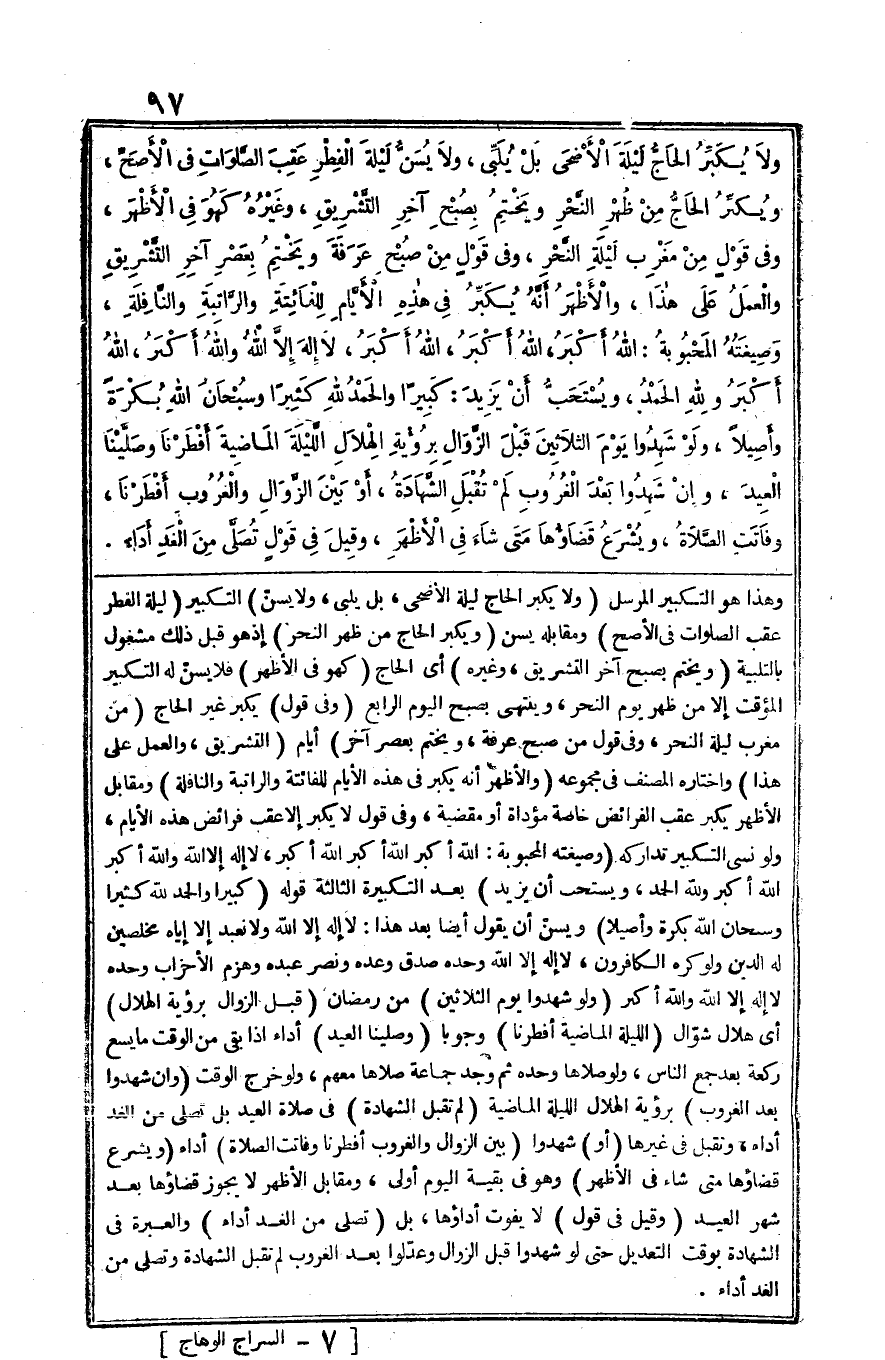 ٩٧
ولاَ يُكَبِّرُ الحَاجُّ لَيْلَةَ الْأَضْحَى بَلْ يُلَبِّى ، ولاَ يُسَنُّ لَيْلَةَ الْفِطْرِ عَقِبَ الصَّلَوَاتِ فِى الْأَصَحِّ ،
ويُكَبِّرُ الحَاجُّ مِنْ ظُهْرِ النَّحْرِ ويَخْتِمُ بِصُبْحِ آخِرِ التَّشْرِيقِ ، وغَيْرُهُ كَهُوَ فِى الْأَظْهَرِ ،
وفى قَوْلٍ مِنْ مَغْرِبِ لَيْلَةِ النَّحْرِ ، وفى قَوْلٍ مِنْ صُبْحِ عَرَفَةَ ويَخْتِمُ بِعَصْرِ آخِرِ التَّشْرِيقِ
والْعمَلُ عَلَى هٰذَا ، والْأَظْهَرُ أَنَّهُ يُكَبِّرُ فِى هٰذِهِ الْأَيَّامِ لِلْفَائِتَةِ والرَّاتِبَةِ والنَّافِلَةِ ،
وَصِيغَتُهُ المَحْبُوبَةُ : اللهُ أَكْبَرُ، اللهُ أَكْبَرُ ، اللهُ أَكْبَرُ ، لاَ إِلهَ إِلاَّ اللهُ واللهُ أَكْبَرُ ، اللهُ
أَكْبَرُ وَلِلهِ الحَمْدُ ، ويُسْتَحَبُّ أَنْ يَزِيدَ : كَبِيرًا والحَمْدُ لِلهِ كَثِيرًا وسُبْحَانَ اللهِ بُكْرَةً
وأَصِيلاً ، ولَوْ شَهِدُوا يَوْمَ الثلاَثِينَ قَبْلَ الزَّوَالِ بِرُؤْيَةِ الْهِلاَلِ اللَّيْلَةَ المَاضِيَةَ أَفْطَرْنَا وصَلَّيْنَا
الْعِيدَ ، وإِنْ شَهِدُوا بَعْدَ الْغُرُوبِ لَمْ تُقْبَلِ الشَّهَادَةُ ، أَوْ بَيْنَ الزَّوَالِ والْغُرُوبِ أَفْطَرْنَا ،
وفَاتَتِ الصَّلاَةُ ، ويُشْرَعُ قَضَاؤُهَا مَتَى شَاءَ فِى الْأَظْهَرِ ، وقِيلَ فِى قَوْلٍ تُصَلَّى مِنَ الْغَدِ أَدَاءً .
وهذا هو التكبير المرسل ( ولا يكبر الحاج ليلة الأضحى ، بل يلبى ، ولا يسنّ ) التكبير ( ليلة الفطر
عقب الصلوات فى الأصح ) ومقابله يسن ( ويكبر الحاج من ظهر النحر ) إذهو قبل ذلك مشغول
بالتلبية ( ويختم بصبح آخر التشريق ، وغيره ) أى الحاج ( كهو فى الأظهر ) فلايسنّ له التكبير
المؤقت إلا من ظهر يوم النحر ، وينتهى بصبح اليوم الرابع ( وفى قول ) يكبر غير الحاج ( من
مغرب ليلة النحر ، وفى قول من صبح عرفة ، ويختم بعصر آخر ) أيام ( التشريق ، والعمل على
هذا ) واختاره المصنف فى مجموعه ( والأظهر أنه يكبر فى هذه الأيام للفائتة والراتبة والنافلة ) ومقابل
الأظهر يكبر عقب الفرائض خاصة مؤداة أو مقضية ، وفى قول لا يكبر إلا عقب فرائض هذه الأيام ،
ولو نسى التكبير تداركه ( وصيغته المحبوبة : الله أكبر الله أكبر الله أكبر ، لا إله إلا الله والله أكبر
الله أكبر ولله الحمد ، ويستحب أن يزيد ) بعد التكبيرة الثالثة قوله ( كبيرا والحمد لله كثيرا
وسبحان الله بكرة وأصيلا ) ويسنّ أن يقول أيضا بعد هذا : لا إله إلا الله ولا نعبد إلا إياه مخلصين
له الدين ولو كره الكافرون ، لا إله إلا الله وحده صدق وعده ونصر عبده وهزم الأحزاب وحده
لا إله إلا الله والله أكبر ( ولو شهدوا يوم الثلاثين ) من رمضان ( قبل الزوال برؤية الهلال )
أى هلال شوّال ( الليلة الماضية أفطرنا ) وجوبا ( وصلينا العيد ) أداء اذا بقى من الوقت مايسع
ركعة بعد جمع الناس ، ولو صلاها وحده ثم وجد جماعة صلاها معهم ، ولو خرج الوقت ( وان شهدوا
بعد الغروب ) برؤية الهلال الليلة الماضية ( لم تقبل الشهادة ) فى صلاة العيد بل تصلى من الغد
أداء ، وتقبل فى غيرها ( أو ) شهدوا ( بين الزوال والغروب أفطرنا وفاتت الصلاة ) أداء ( ويشرع
قضاؤها متى شاء فى الأظهر ) وهو فى بقية اليوم أولى ، ومقابل الأظهر لا يجوز قضاؤها بعد
شهر العيد ( وقيل فى قول ) لا يفوت أداؤها ، بل ( تصلى من الغد أداء ) والعبرة فى
الشهادة بوقت التعديل حتى لو شهدوا قبل الزوال وعدّلوا بعد الغروب لم تقبل الشهادة وتصلى من
الغد أداء .
[ ٧ – السراج الوهاج ]